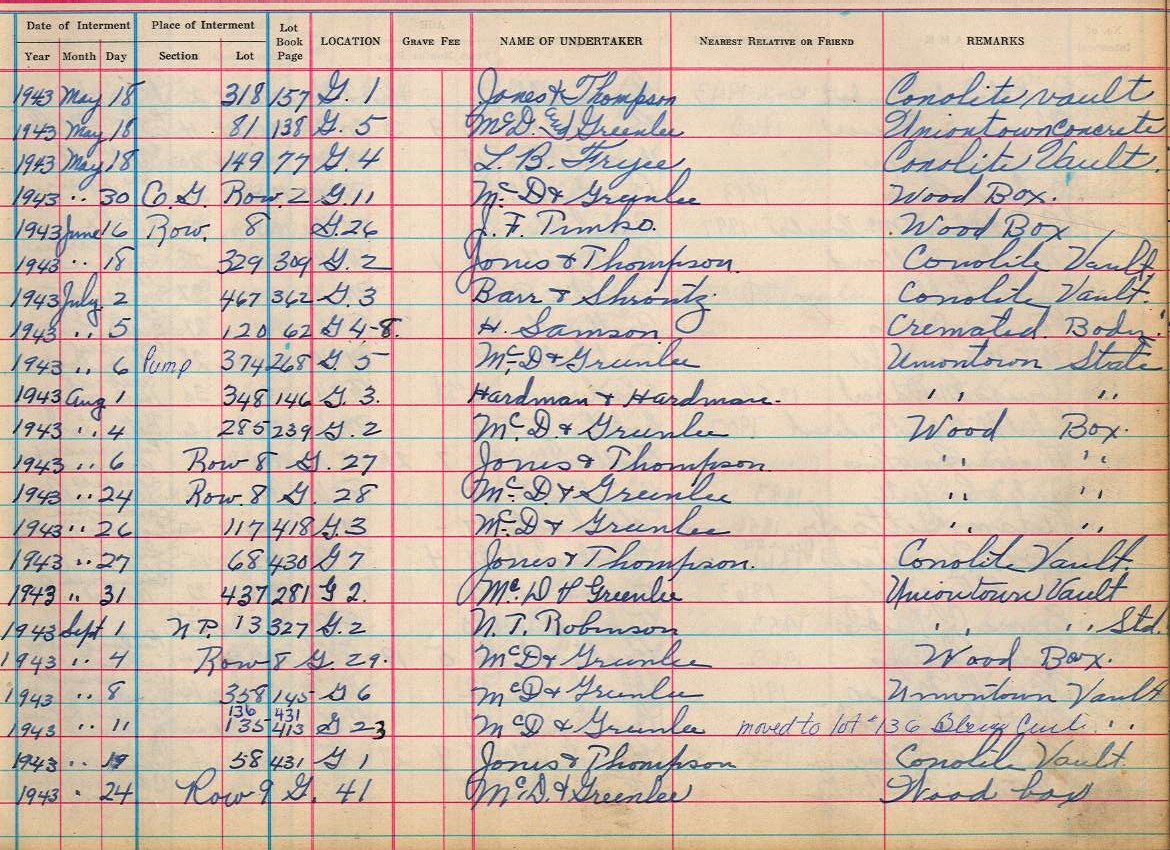 Date of Interment Place of Interment Lot Book Page LOCATION GRAVE FEE NAME OF UNDERTAKER NEAREST RELATIVE OR FRIEND REMARKS
Year Month Day Section Lot
1943 May 18 318 157 G. 1 Jones & Thompson Conolite vault
1943 May 18 81 138 G. 5 McD. & Greenlee Uniontown concrete
1943 May 18 149 77 G. 4 L. B. Fryee Conolite Vault.
1943 " 30 Co. G. Row. 2 G. 11 McD & Greenlee Wood Box.
1943 June 16 Row. 8 G. 26 J. F. Timko. Wood Box
1943 " 18 329 309 G. 2 Jones & Thompson. Conolite Vault,
1943 July 2 467 362 G. 3 Barr & Shrontz. Conolite Vault.
1943 " 5 120 62 G 4-8. H. Samson Cremated. Body.
1943 " 6 Pump 374 268 G. 5 McD & Greenlee Uniontown State
1943 Aug 1 348 146 G. 3. Hardman & Hardman. " "
1943 " 4 285 239 G. 2 McD. & Greenlee Wood Box.
1943 " 6 Row 8 G. 27 Jones & Thompson. " "
1943 " 24 Row. 8 G. 28 McD & Greenlee " "
1943 " 26 117 418 G. 3 McD & Greenlee " "
1943 " 27 68 430 G 7 Jones & Thompson. Conolite Vault.
1943 " 31 437 281 G 2. McD & Greenlee Uniontown Vault
1943 Sept 1 N P. 13 327 G. 2 N. T. Robinson " " Std.
1943 " 4 Row 8 G. 29. McD & Greenlee Wood Box.
1943 " 8 358 145 G 6 McD & Greenlee Uniontown Vault
136 431
1943 " 11 135 413 G 23 McD & Greenlee moved to lot # 136 " "
1943 " 19 58 431 G 1 Jones & Thompson Conolite Vault.
1943 " 24 Row 9 G. 41 McD. & Greenlee Wood box